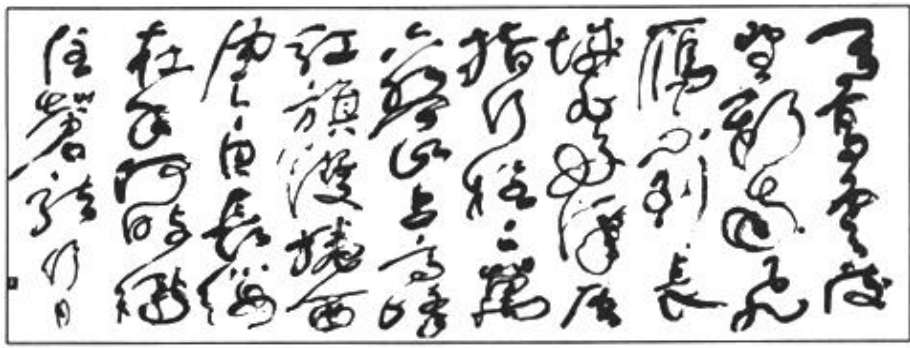 天高雲淡
望斷南飛
雁不到長
城非好漢屈
指行程二萬
六盤山上高峰
紅旗漫捲西
風今日長纓
在手何時縛
住蒼龍